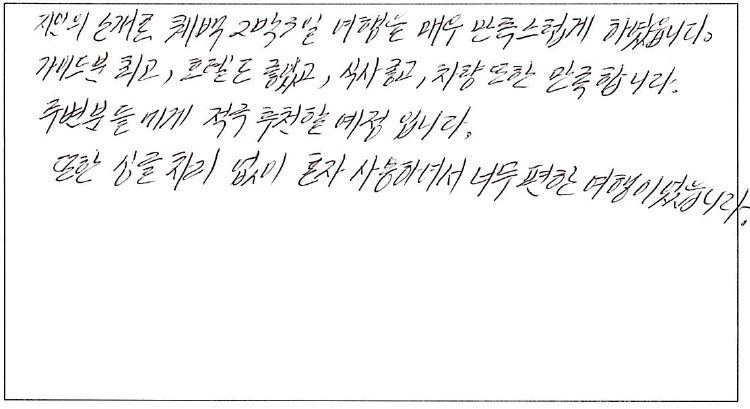 지인의 소개로 퀘백 2박3일 여행을 매우 만족스럽게 하였읍니다.
가이드분 최고, 호텔도 좋았고, 식사 좋고, 차량 또한 만족합니다.
주변분들에게 적극 추천할 예정입니다.
또한 싱글 차지 없이 혼자 사용하여서 너무 편한 여행이었습니다.